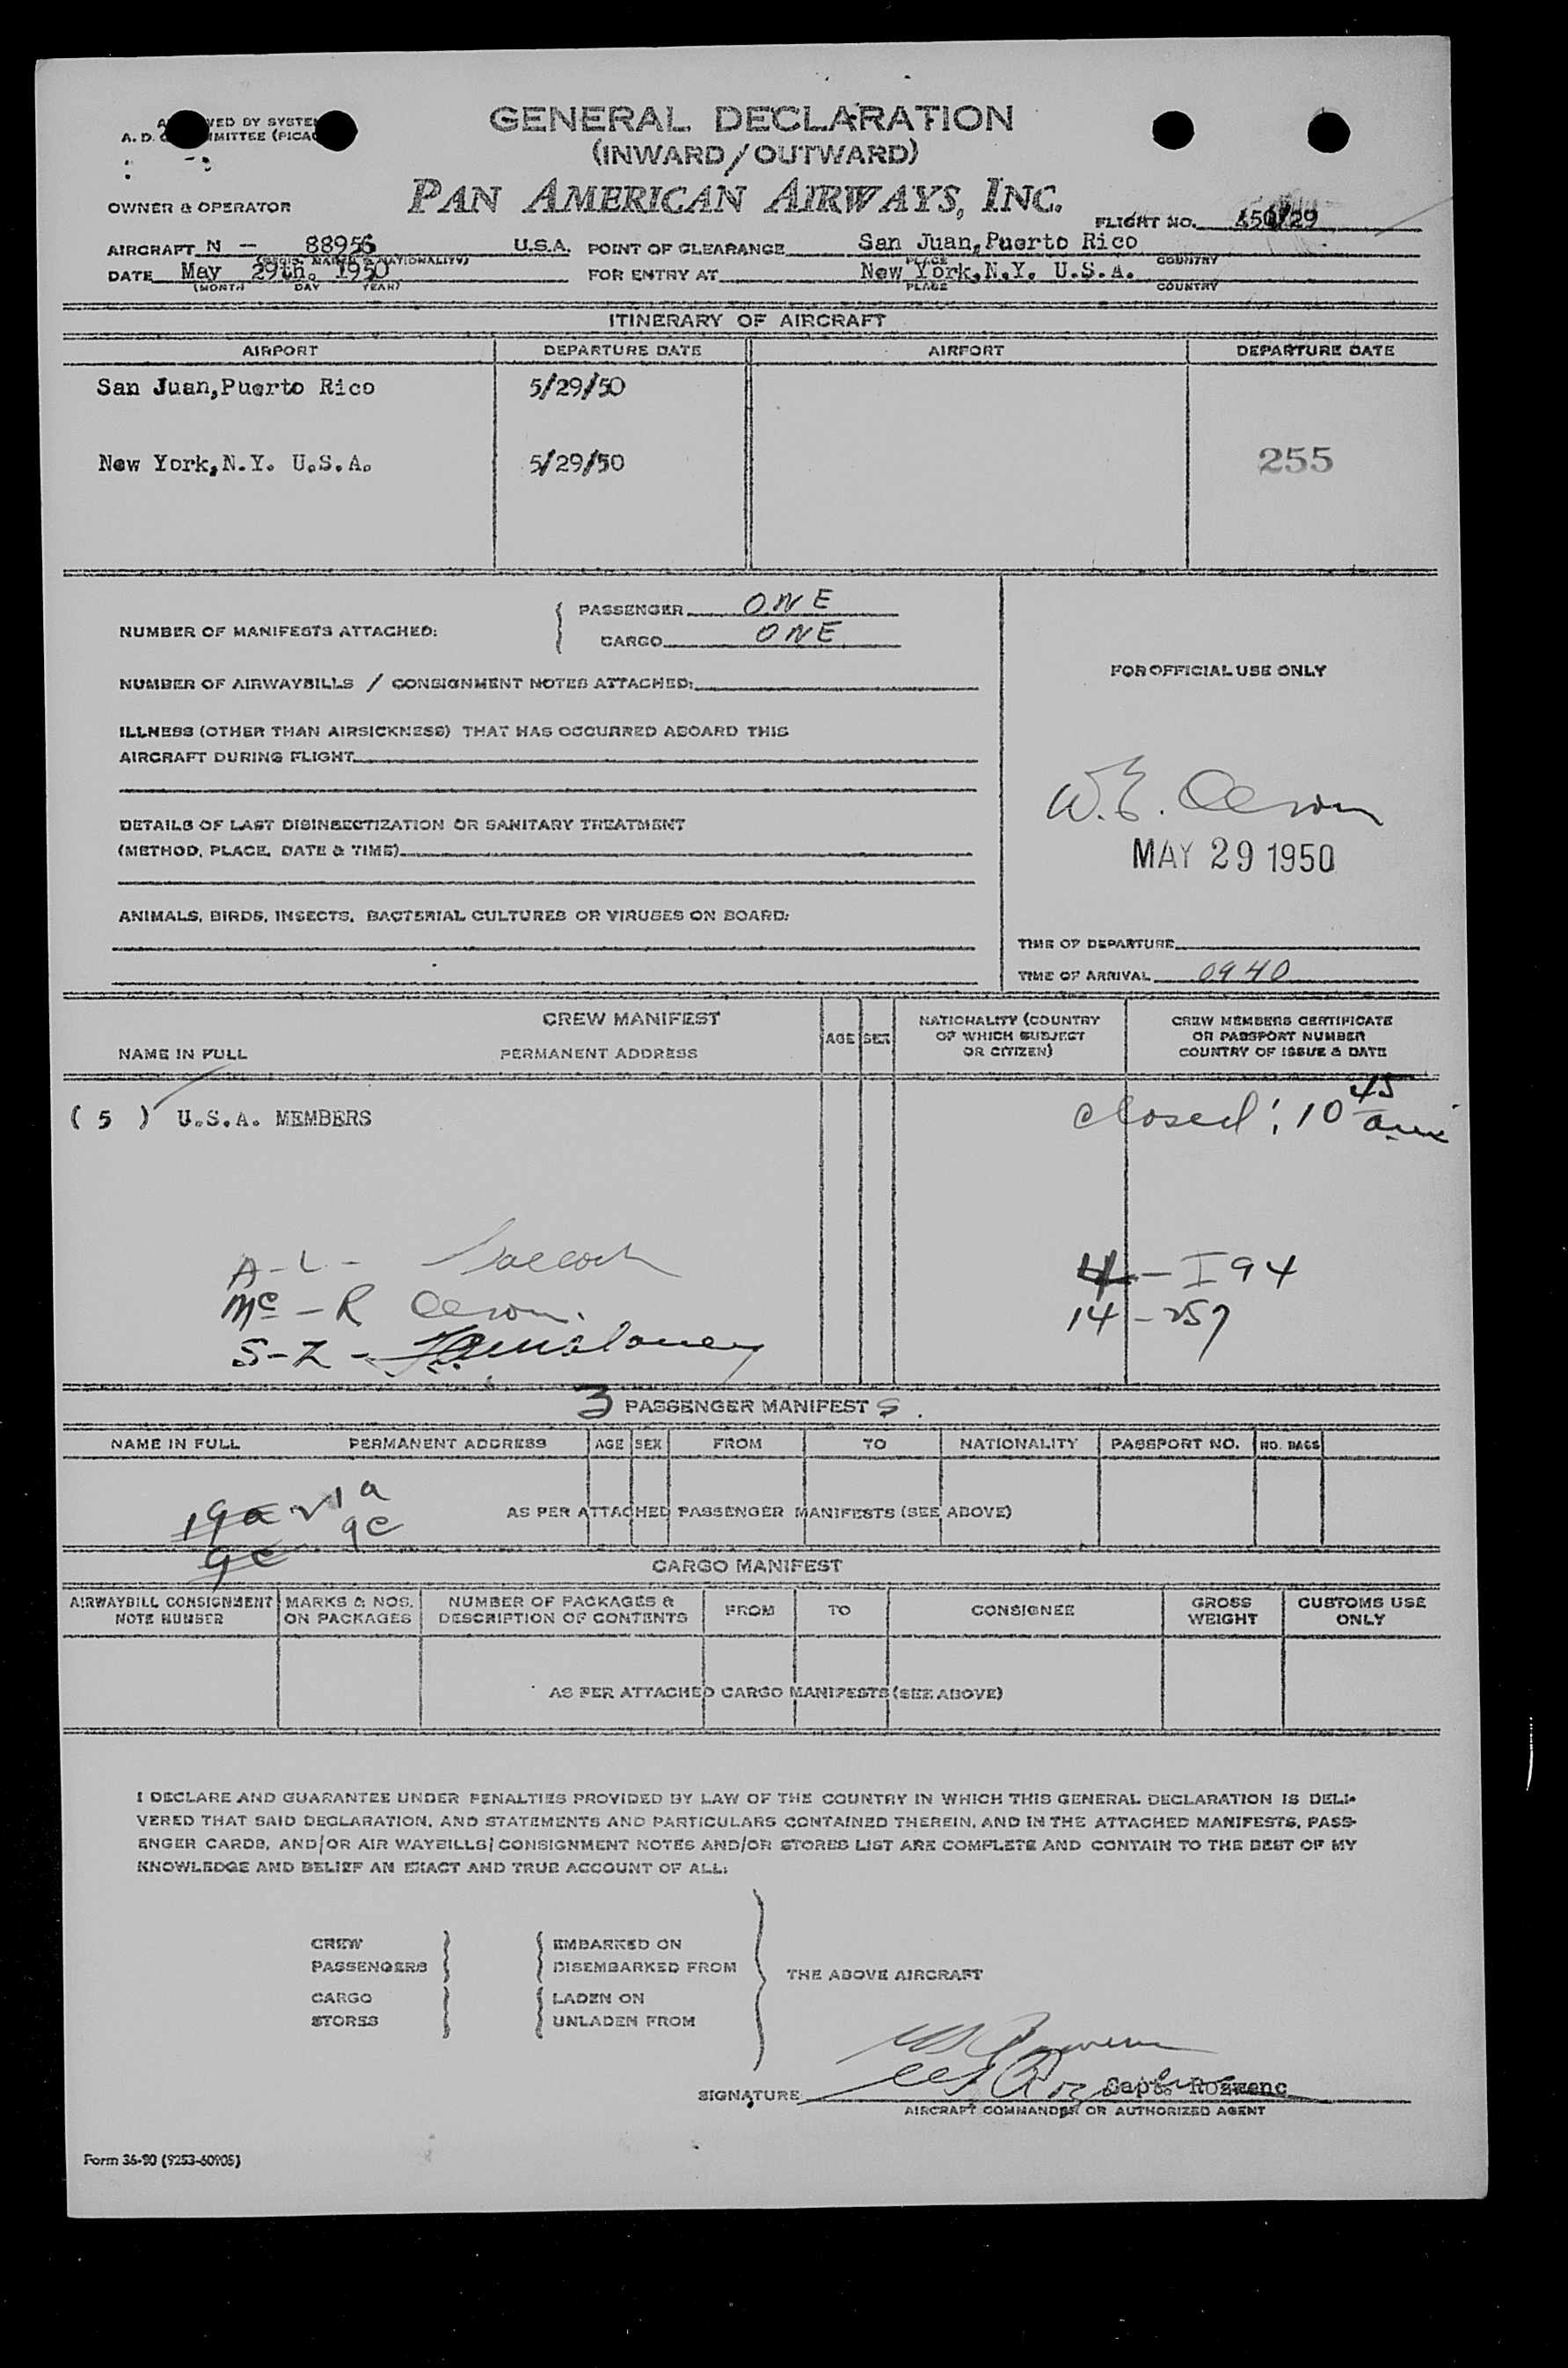 GENERAL DECLARATION
(INWARD/OUTWARD)
A. D.
PAN AMERICAN AIRWAYS, INC.
OWNER & OPERATOR
FLIGHT NO.
AIRCRAFT N - 88956 U.S.A. POINT OF CLEARANCE San Juan,Puerto Rico
PLACE COUNTRY
DATE May 29th. 1950 FOR ENTRY AT New York,N.Y. U.S.A.
(MONTH DAY YEAR) PLACE COUNTRY
ITINERARY OF AIRCRAFT
AIRPORT DEPARTURE DATE AIRPORT DEPARTURE DATE
San Juan,Puerto Rico 5/29/50
New York,N.Y. U.S.A. 5/29/50 255
NUMBER OF MANIFESTS ATTACHED: PASSENGER ONE
CARGO ONE
FOR OFFICIAL USE ONLY
NUMBER OF AIRWAYBILLS / CONSIGNMENT NOTES ATTACHED:
ILLNESS (OTHER THAN AIRSICKNESS) THAT HAS OCCURRED ABOARD THIS
AIRCRAFT DURING FLIGHT
W.E.
DETAILS OF LAST DISINSECTIZATION OR SANITARY TREATMENT
(METHOD, PLACE, DATE & TIME)
MAY 29 1950
ANIMALS, BIRDS, INSECTS, BACTERIAL CULTURES OR VIRUSES ON BOARD:
TIME OF DEPARTURE
TIME OF ARRIVAL 0940
CREW MANIFEST
NAME IN FULL PERMANENT ADDRESS AGE SEX NATIONALITY (COUNTRY OF WHICH SUBJECT OR CITIZEN) CREW MEMBERS CERTIFICATE OR PASSPORT NUMBER COUNTRY OF ISSUE & DATE
( 5 ) U.S.A. MEMBERS closed: 10 45 am
A-L - 4 - I94
Mc - R 14 - 257
S-Z -
3 PASSENGER MANIFEST S
NAME IN FULL PERMANENT ADDRESS AGE SEX FROM TO NATIONALITY PASSPORT NO. NO. BAGS
19a 21a
9c 9c
AS PER ATTACHED PASSENGER MANIFESTS (SEE ABOVE)
CARGO MANIFEST
AIRWAYBILL CONSIGNMENT NOTE NUMBER MARKS & NOS. ON PACKAGES NUMBER OF PACKAGES & DESCRIPTION OF CONTENTS FROM TO CONSIGNEE GROSS WEIGHT CUSTOMS USE ONLY
AS PER ATTACHED CARGO MANIFESTS (SEE ABOVE)
I DECLARE AND GUARANTEE UNDER PENALTIES PROVIDED BY LAW OF THE COUNTRY IN WHICH THIS GENERAL DECLARATION IS DELI-
VERED THAT SAID DECLARATION, AND STATEMENTS AND PARTICULARS CONTAINED THEREIN, AND IN THE ATTACHED MANIFESTS, PASS-
ENGER CARDS, AND/OR AIR WAYBILLS/CONSIGNMENT NOTES AND/OR STORES LIST ARE COMPLETE AND CONTAIN TO THE BEST OF MY
KNOWLEDGE AND BELIEF AN EXACT AND TRUE ACCOUNT OF ALL:
CREW EMBARKED ON
PASSENGERS DISEMBARKED FROM
THE ABOVE AIRCRAFT
CARGO LADEN ON
STORES UNLADEN FROM
SIGNATURE Capt. Rozwenc
AIRCRAFT COMMANDER OR AUTHORIZED AGENT
Form 36-90 (9253-60905)